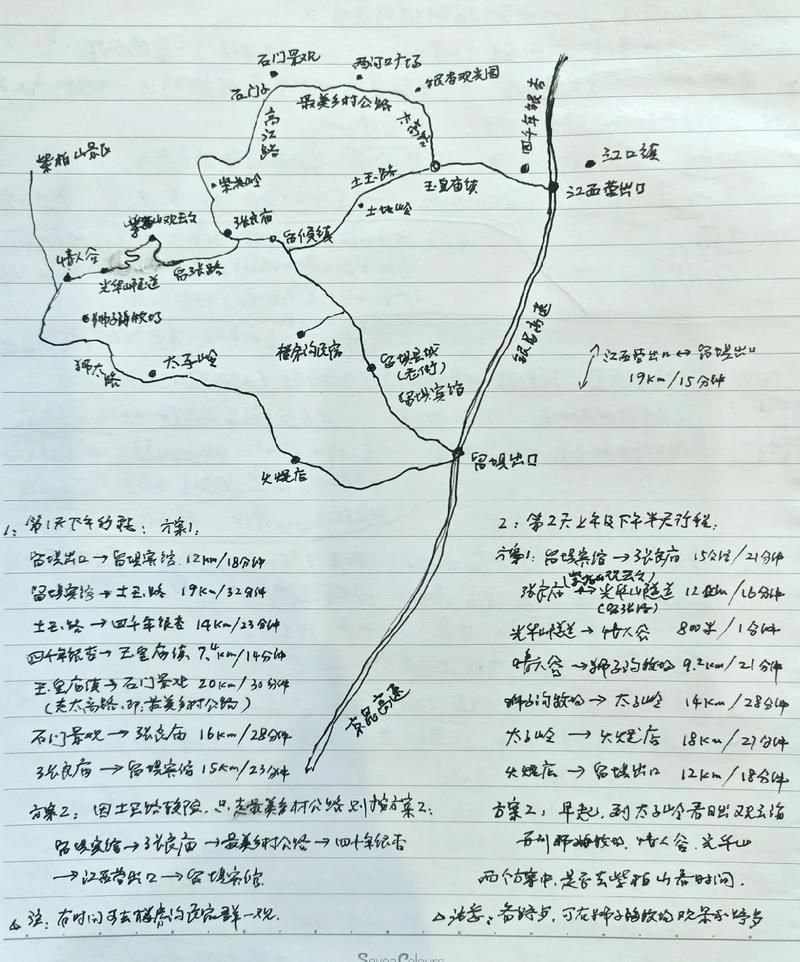 石门景观
西河口广场
银杏观光园
石门子
最美乡村公路
高江路
四千年银杏
江口镇
紫柏山景区
柴关岭
土玉路
玉皇庙镇
江西营出口
土地岭
紫柏山观云台
张良庙
留侯镇
情人谷
光华山隧道
留张路
银昆高速
狮子沟牧场
楼房沟民宿
狮太路
太子岭
留坝县城
(老街)
留坝宾馆
江西营出口↔留坝出口
19km/15分钟
火烧店
留坝出口
京昆高速
1: 第1天下午行程: 方案1:
留坝出口→留坝宾馆 12km/18分钟
留坝宾馆→土玉路 19km/32分钟
土玉路→四千年银杏 14km/23分钟
四千年银杏→玉皇庙镇 7.4km/14分钟
玉皇庙镇→石门景观 20km/30分钟
(走太高路,即:最美乡村公路)
石门景观→张良庙 16km/28分钟
张良庙→留坝宾馆 15km/23分钟
方案2: 因土玉路较险,只走最美乡村公路则按方案2:
留坝宾馆→张良庙→最美乡村公路→四千年银杏
→江西营出口→留坝宾馆
△注: 有时间可去楼房沟民宿群一观.
2: 第2天上午及下午半天行程:
方案1: 留坝宾馆→张良庙 15公里/21分钟
(紫柏山观云台)
张良庙→光华山隧道 12km/16分钟
(留张路)
光华山隧道→情人谷 800米/1分钟
情人谷→狮子沟牧场 9.2km/21分钟
狮子沟牧场→太子岭 14km/28分钟
太子岭→火烧店 18km/27分钟
火烧店→留坝出口 12km/18分钟
方案2: 早起,到太子岭看日出观云海
再到狮子沟牧场,情人谷,光华山
两个方案中,是否去紫柏山看时间.
SevenColours